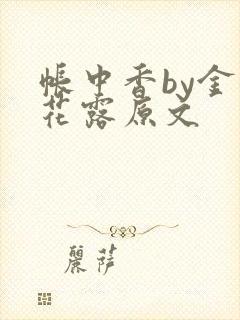 帐中香by金
花露原文
丽萨